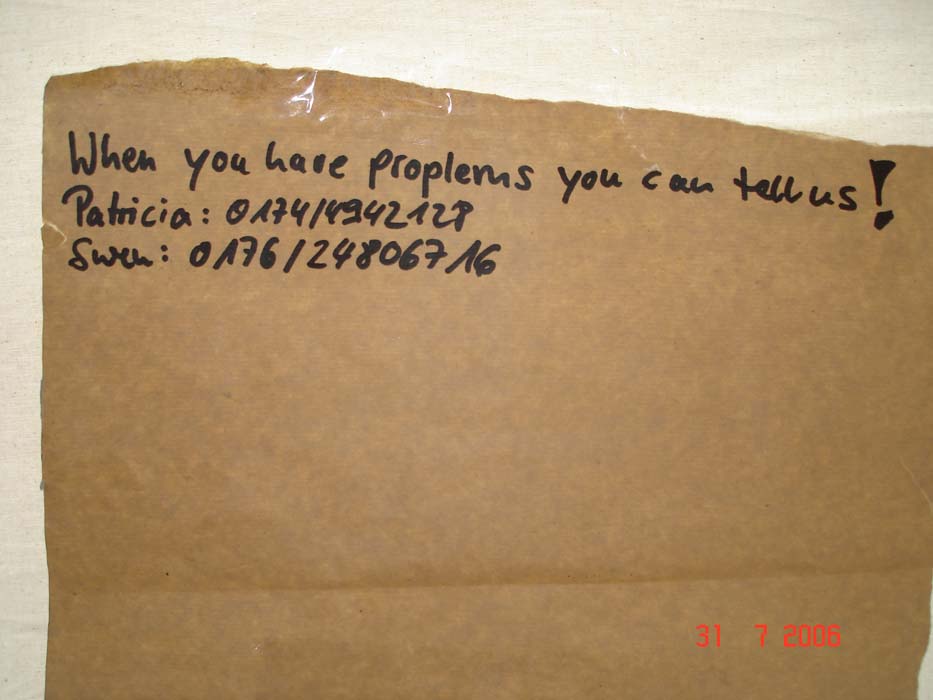 When you have proplems you can tell us!
Patricia: 0174/4942128
Swen: 0176/24806716
31 7 2006